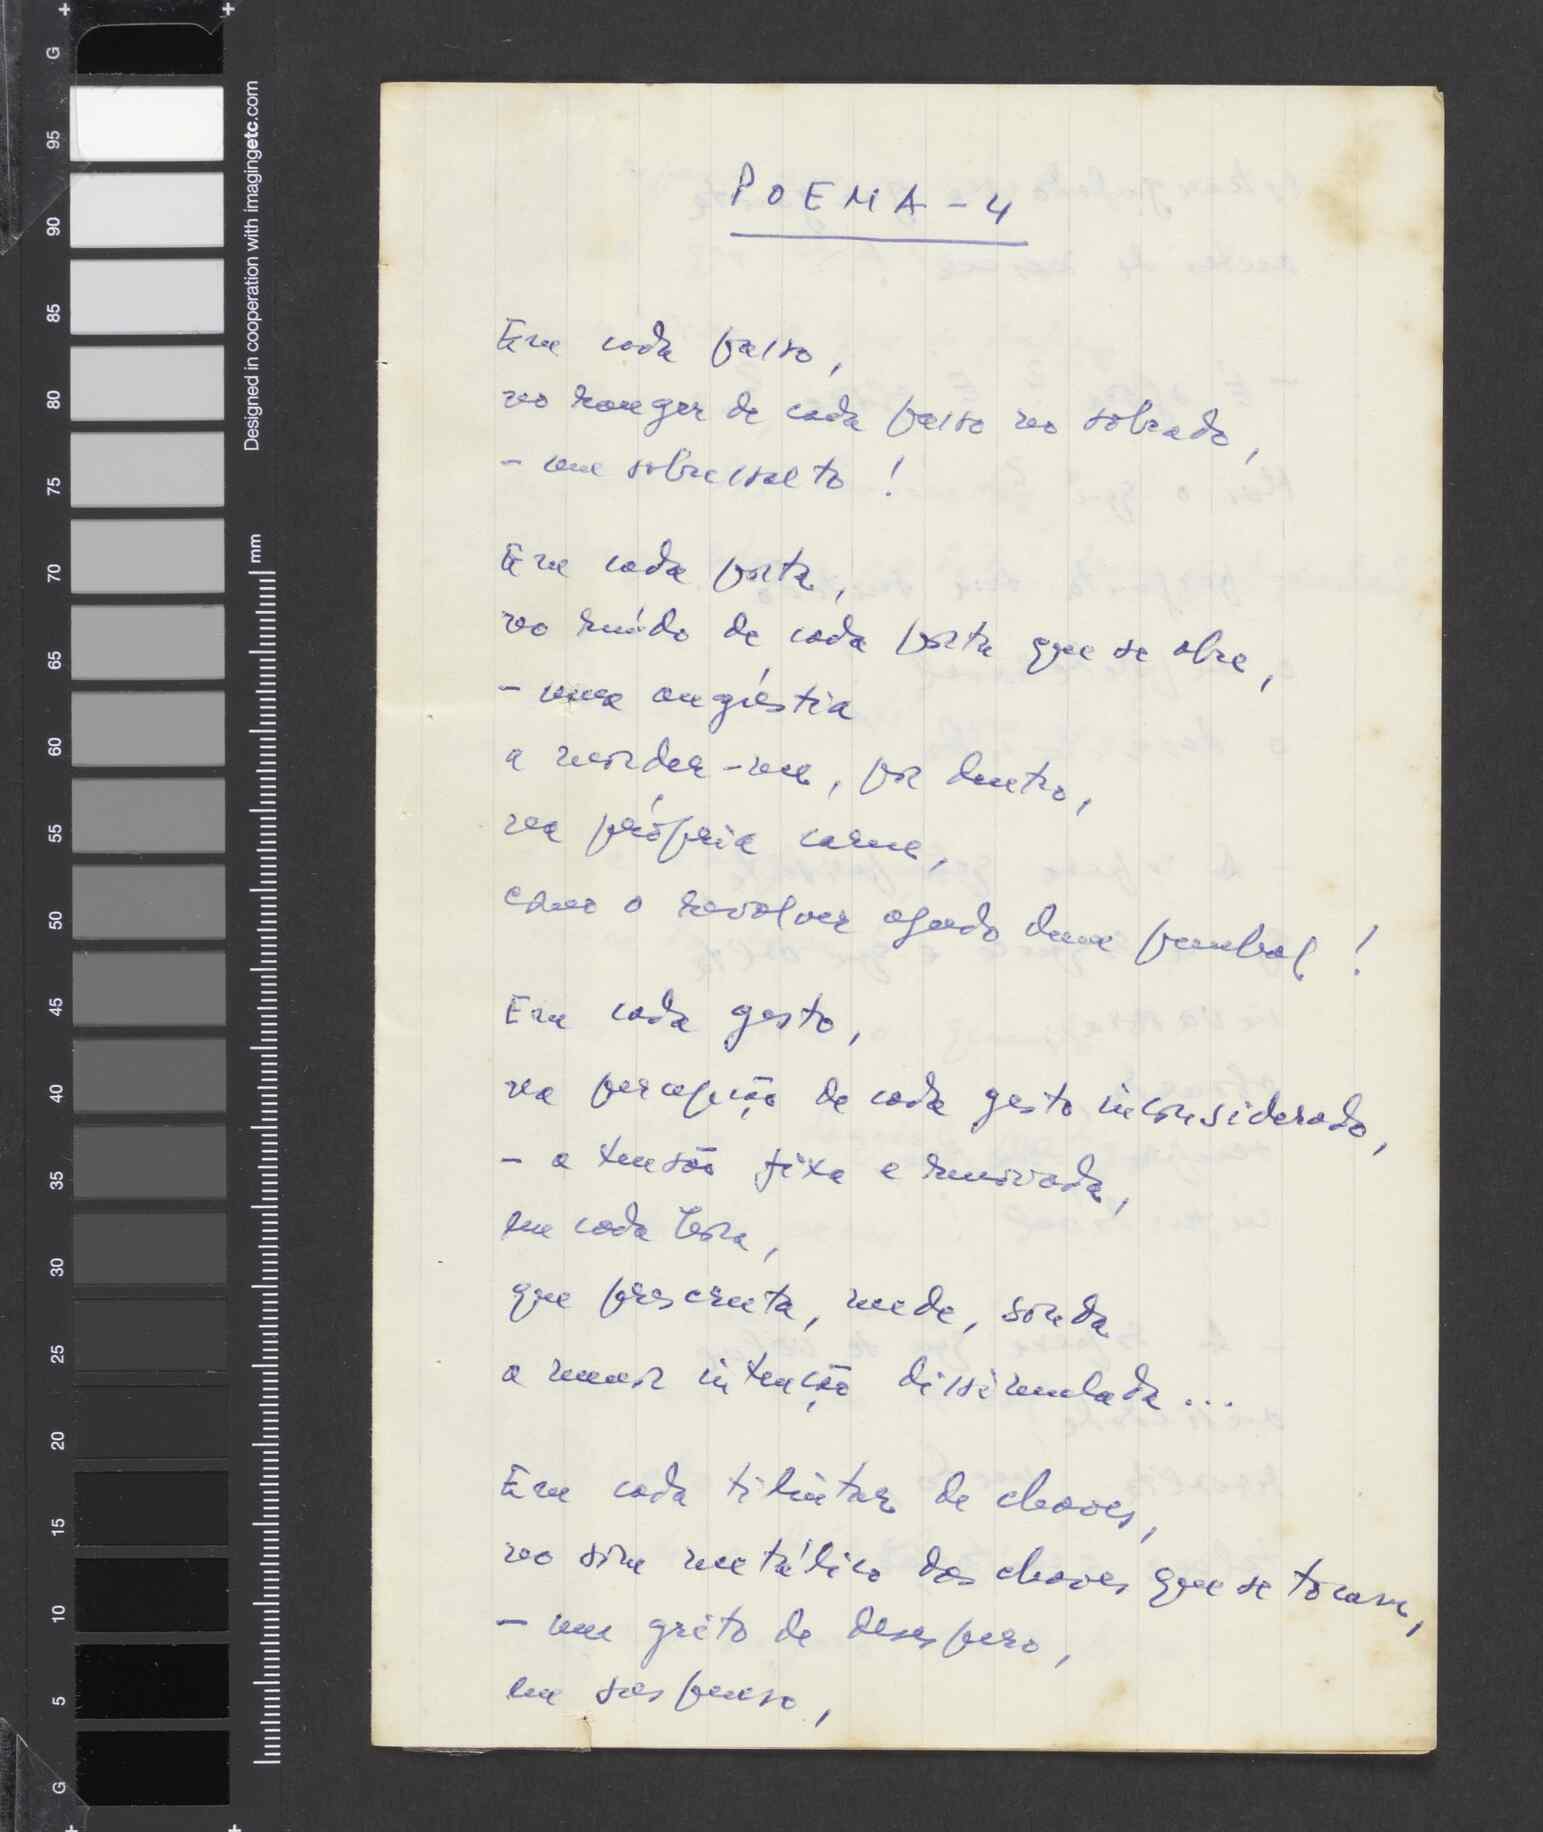 G
95
90
85
80
75
70
65
60
55
50
45
40
35
30
25
20
15
10
5
G
Designed in cooperation with imagingetc.com
mm
POEMA-4
Em cada passo,
no ranger de cada passo no sobrado,
- um sobressalto!
Em cada porta,
no ruído de cada porta que se abre,
- uma angústia
a morder-me, por dentro,
na própria carne,
como o revolver agudo dum punhal!
Em cada gesto,
na percepção de cada gesto inconsiderado,
- a tensão fixa e renovada,
em cada hora,
que prescruta, mede, sonda
a menor intenção dissimulada...
Em cada tilintar de chaves,
no som metálico das chaves que se tocam,
- um grito de desespero,
em suspenso,